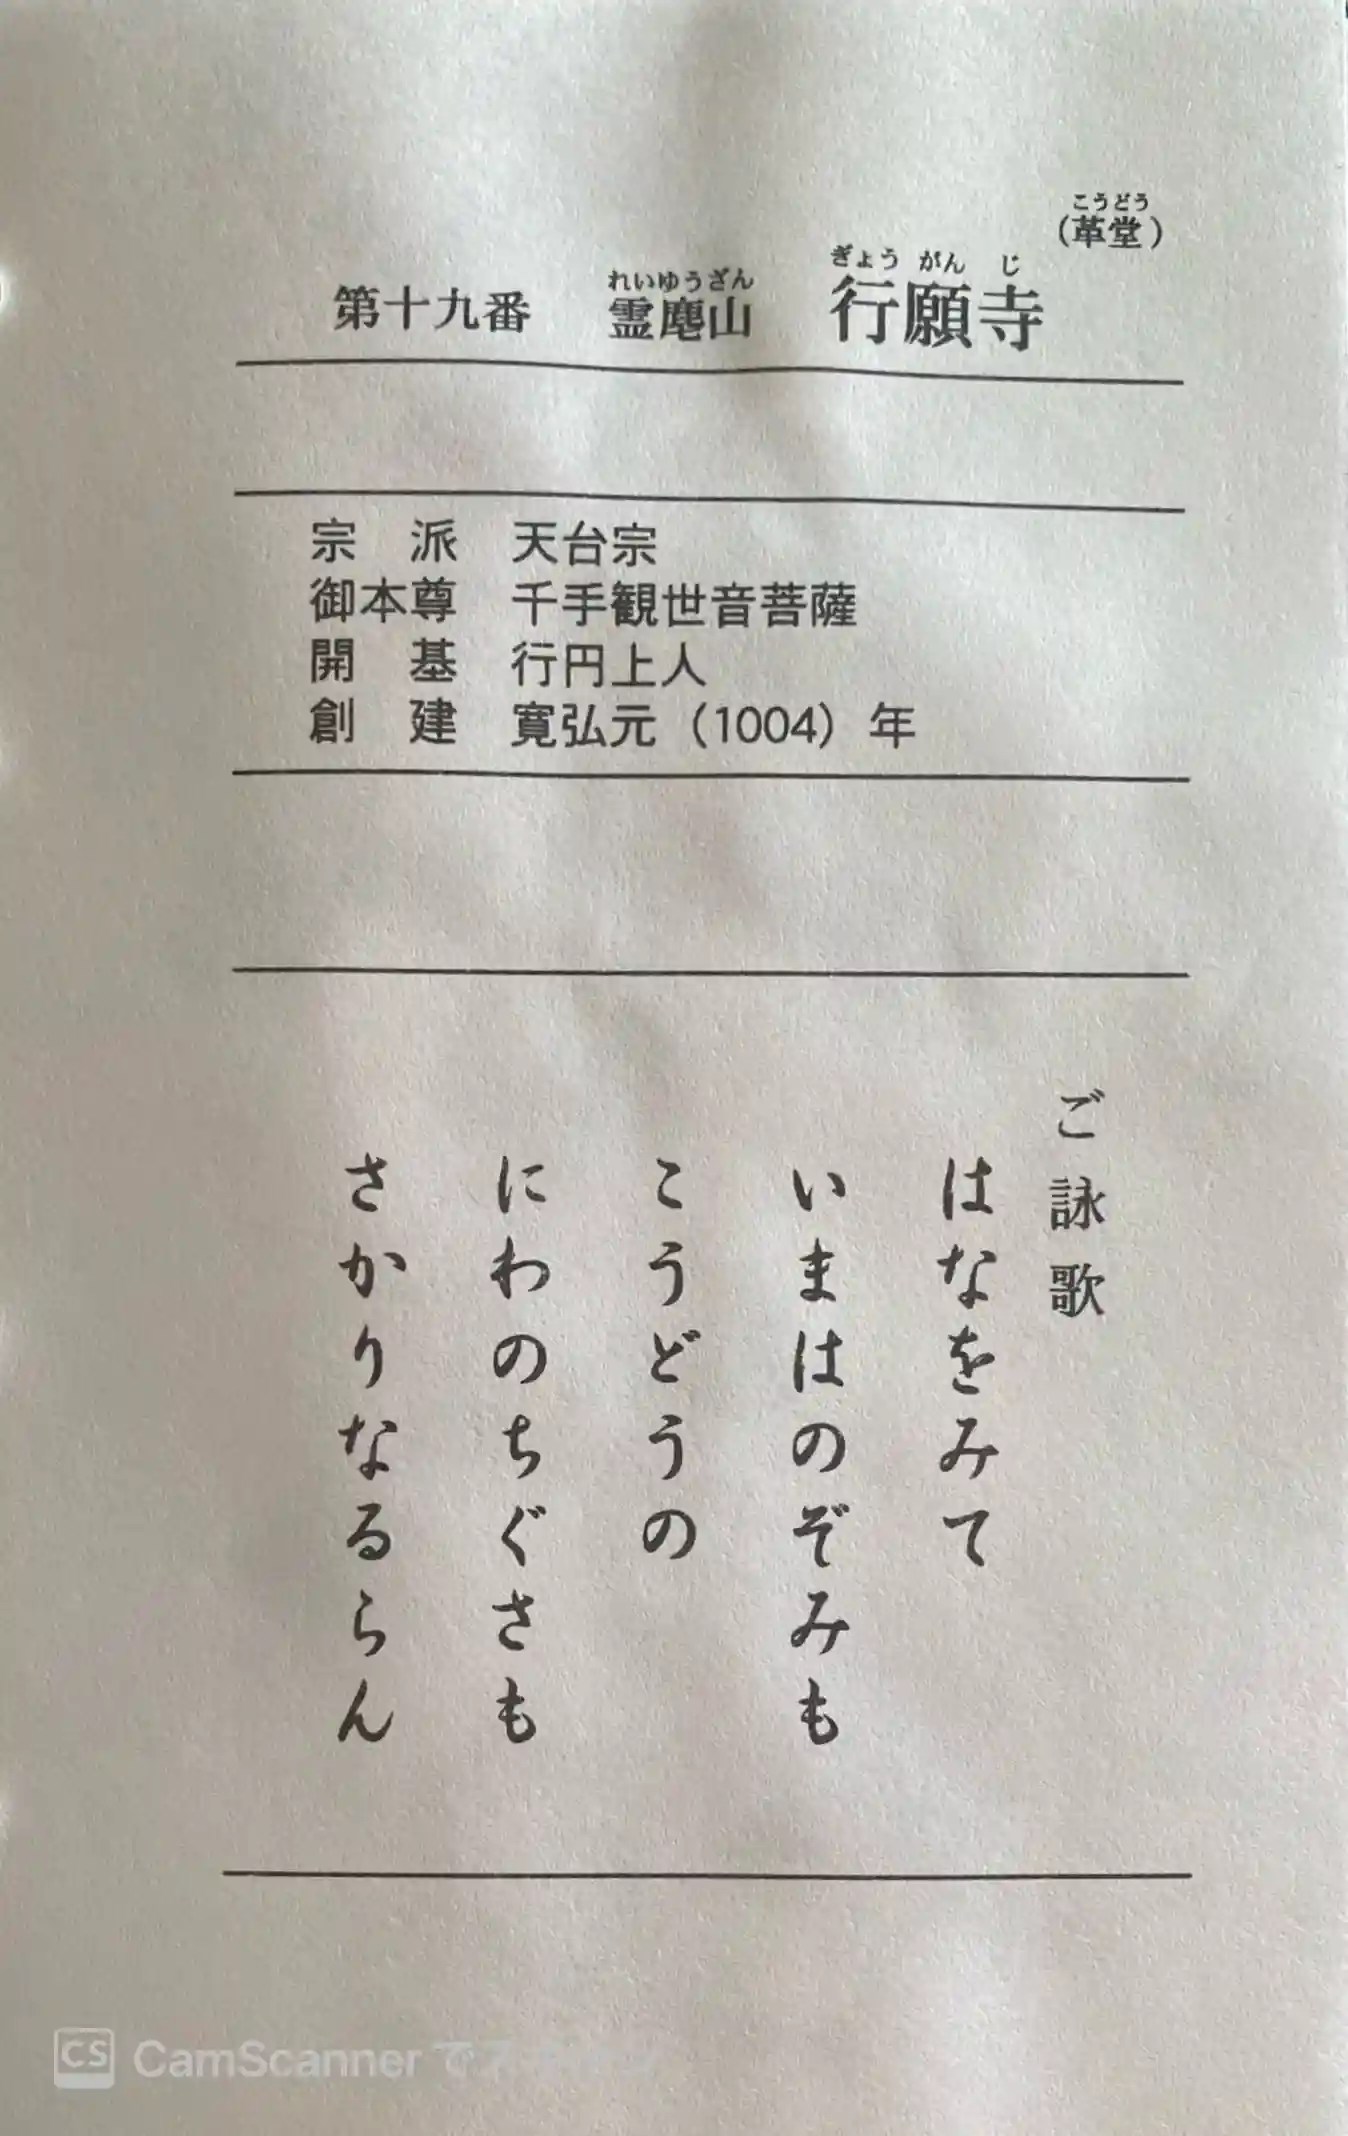 (革堂)
こうどう
第十九番 霊麀山 行願寺
れいゆうざん ぎょうがんじ
宗　派　天台宗
御本尊　千手観世音菩薩
開　基　行円上人
創　建　寛弘元（1004）年
ご詠歌
はなをみて
いまはのぞみも
こうどうの
にわのちぐさも
さかりなるらん
CS CamScanner で